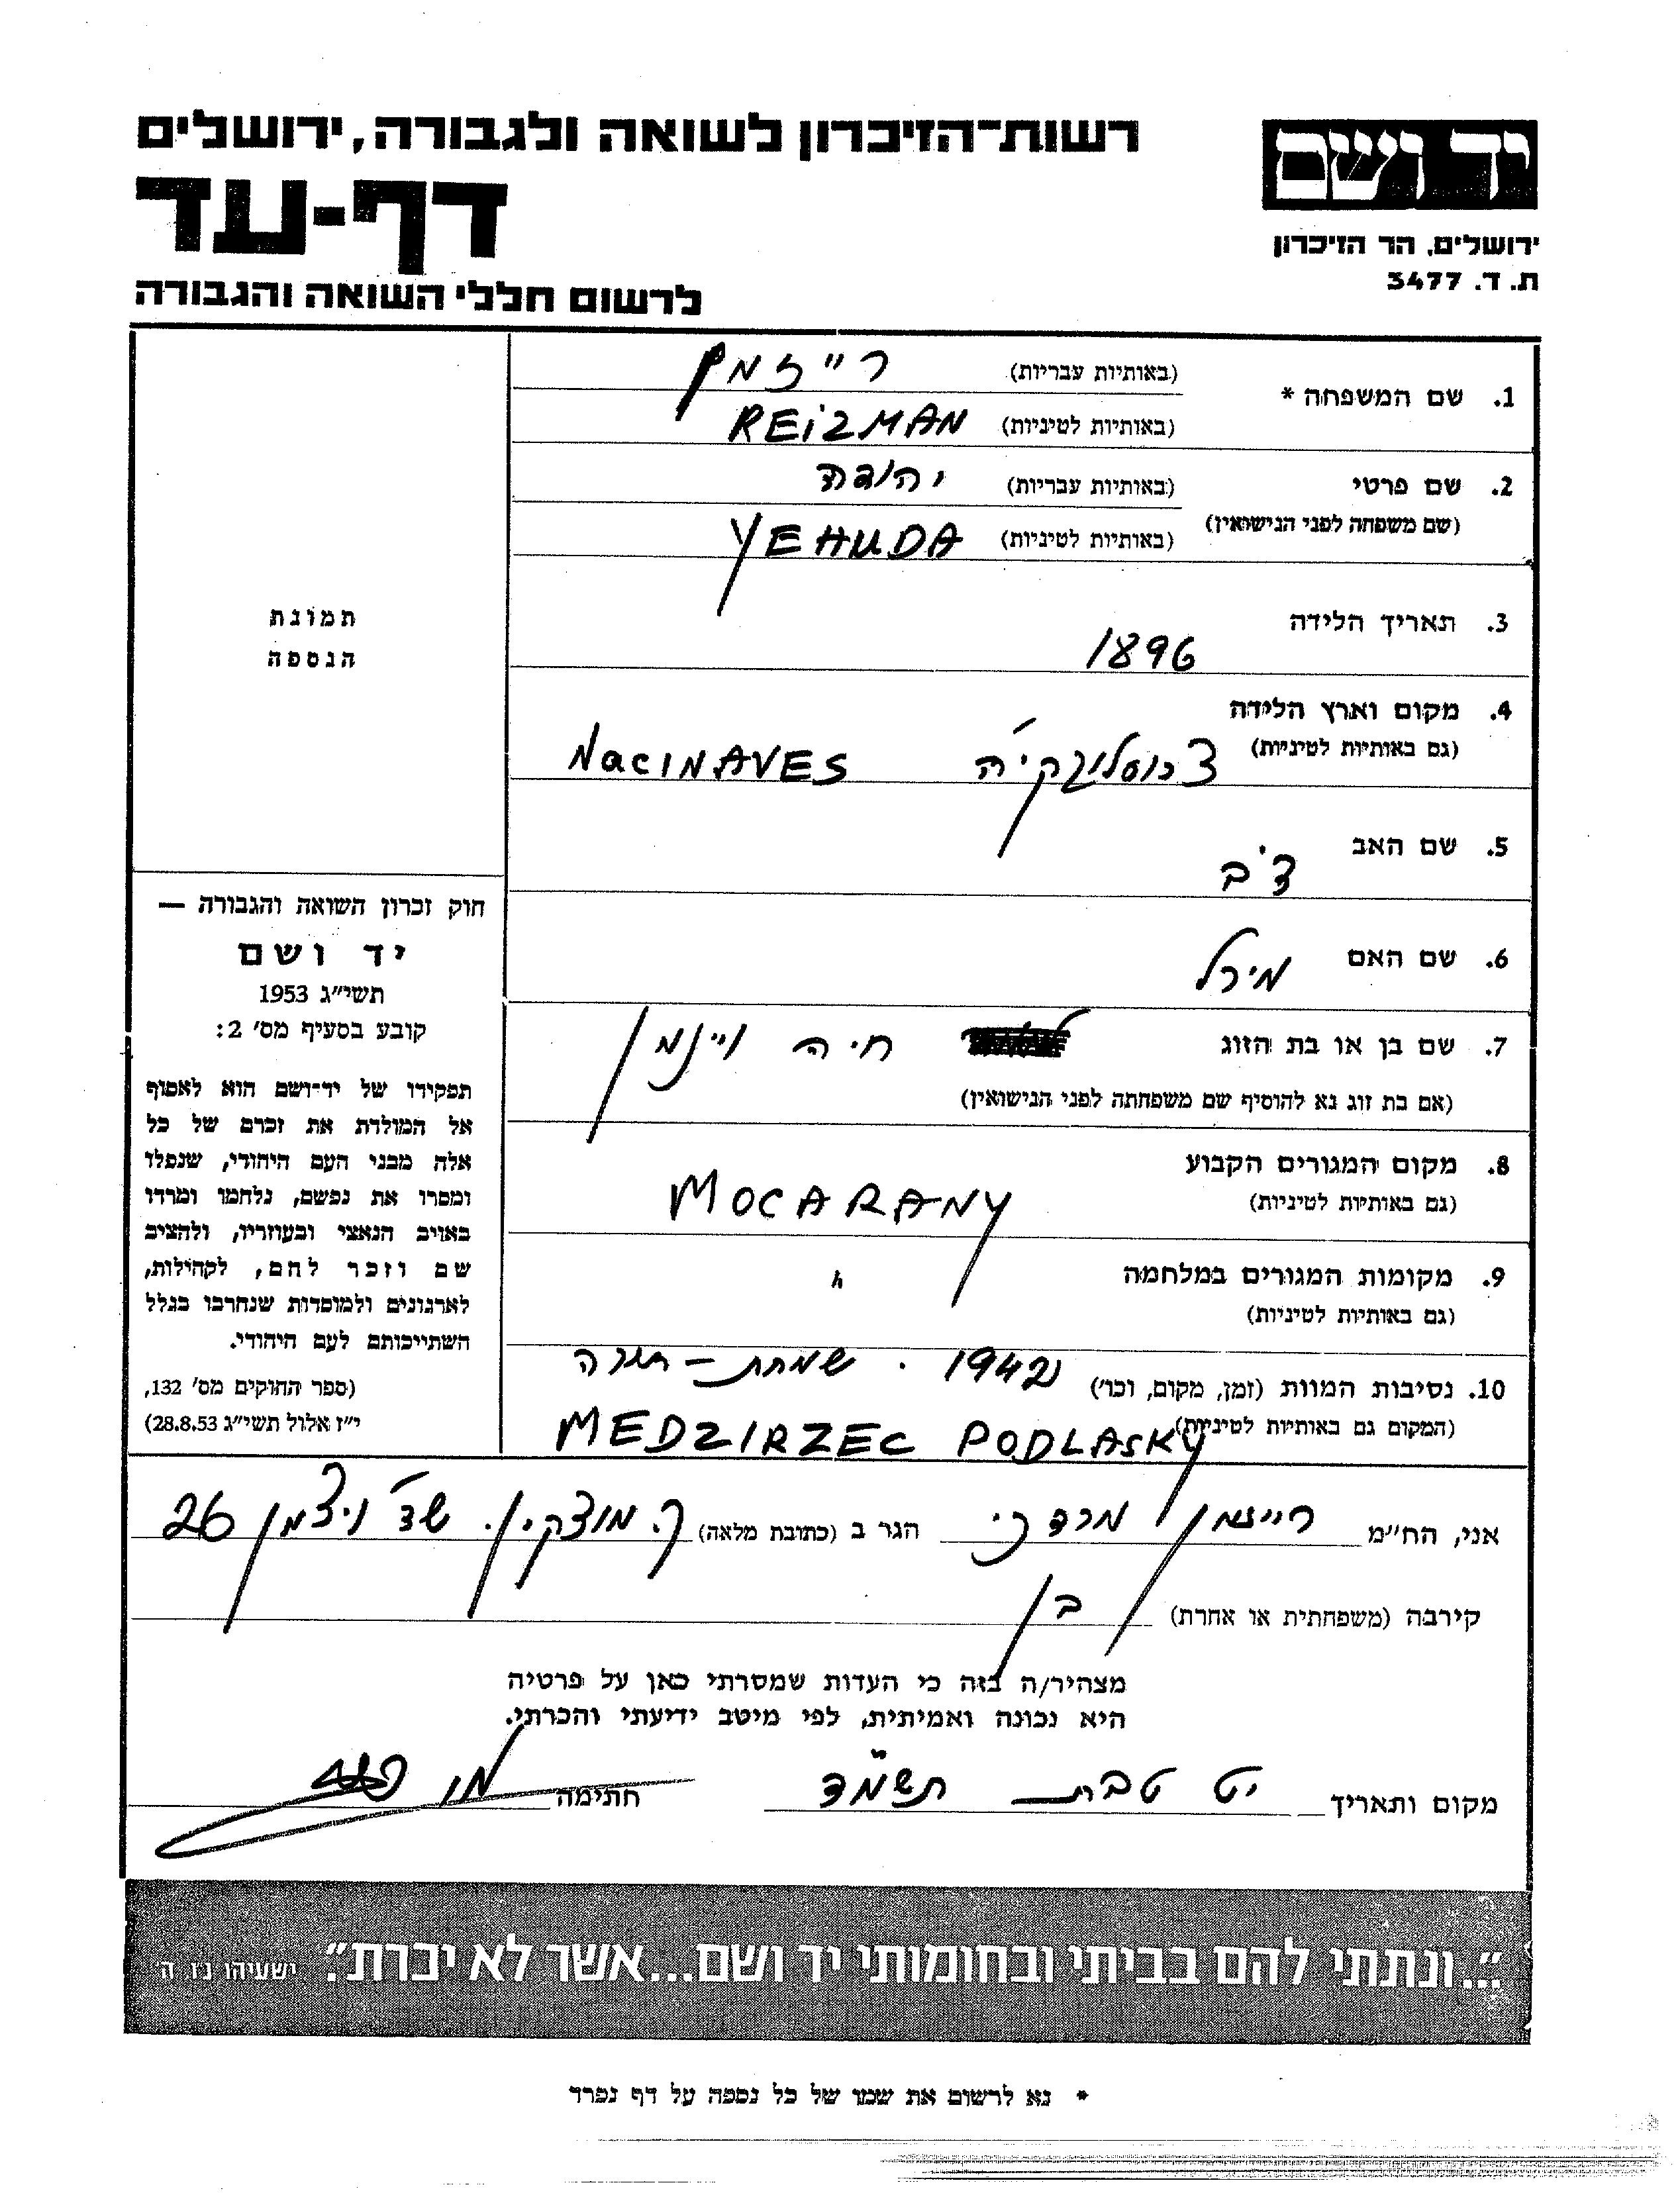 רשות-הזיכרון לשואה ולגבורה, ירושלים
דף-עד
לרשום חללי השואה והגבורה
יד ושם
ירושלים, הר הזיכרון
ת. ד. 3477
1. שם המשפחה *
(באותיות עבריות) רייזמן
(באותיות לטיניות) REIZMAN
2. שם פרטי
(שם משפחה לפני הנישואין)
(באותיות עבריות) יהודה
(באותיות לטיניות) YEHUDA
3. תאריך הלידה 1896
4. מקום וארץ הלידה
(גם באותיות לטיניות) צ'כוסלובקיה NACINAVES
5. שם האב
6. שם האם מירל
7. שם בן או בת הזוג חיה ויינמן
(אם בת זוג נא להוסיף שם משפחתה לפני הנישואין)
8. מקום המגורים הקבוע
(גם באותיות לטיניות) MOCARANY
9. מקומות המגורים במלחמה "
(גם באותיות לטיניות)
10. נסיבות המוות (זמן, מקום, וכו') 1942 . שמחת - תורה
(המקום גם באותיות לטיניות) MEDZIRZEC PODLASKY
תמונת
הנספה
חוק זכרון השואה והגבורה —
יד ושם
תשי"ג 1953
קובע בסעיף מס' 2:
תפקידו של יד-ושם הוא לאסוף
אל המולדת את זכרם של כל
אלה מבני העם היהודי, שנפלו
ומסרו את נפשם, נלחמו ומרדו
באויב הנאצי ובעוזריו, ולהציב
שם וזכר להם, לקהילות,
לארגונים ולמוסדות שנחרבו בגלל
השתייכותם לעם היהודי.
(ספר החוקים מס' 132,
י"ז אלול תשי"ג 28.8.53)
אני, הח"מ רייזמן מרדכי הגר ב (כתובת מלאה) ק. מוצקין. שד' ויצמן 26
קירבה (משפחתית או אחרת) בן
מצהיר/ה בזה כי העדות שמסרתי כאן על פרטיה
היא נכונה ואמיתית, לפי מיטב ידיעתי והכרתי.
מקום ותאריך יט טבת תשמ"ד חתימה
"...ונתתי להם בביתי ובחומותי יד ושם...אשר לא יכרת". ישעיהו נו ה
* נא לרשום את שמו של כל נספה על דף נפרד